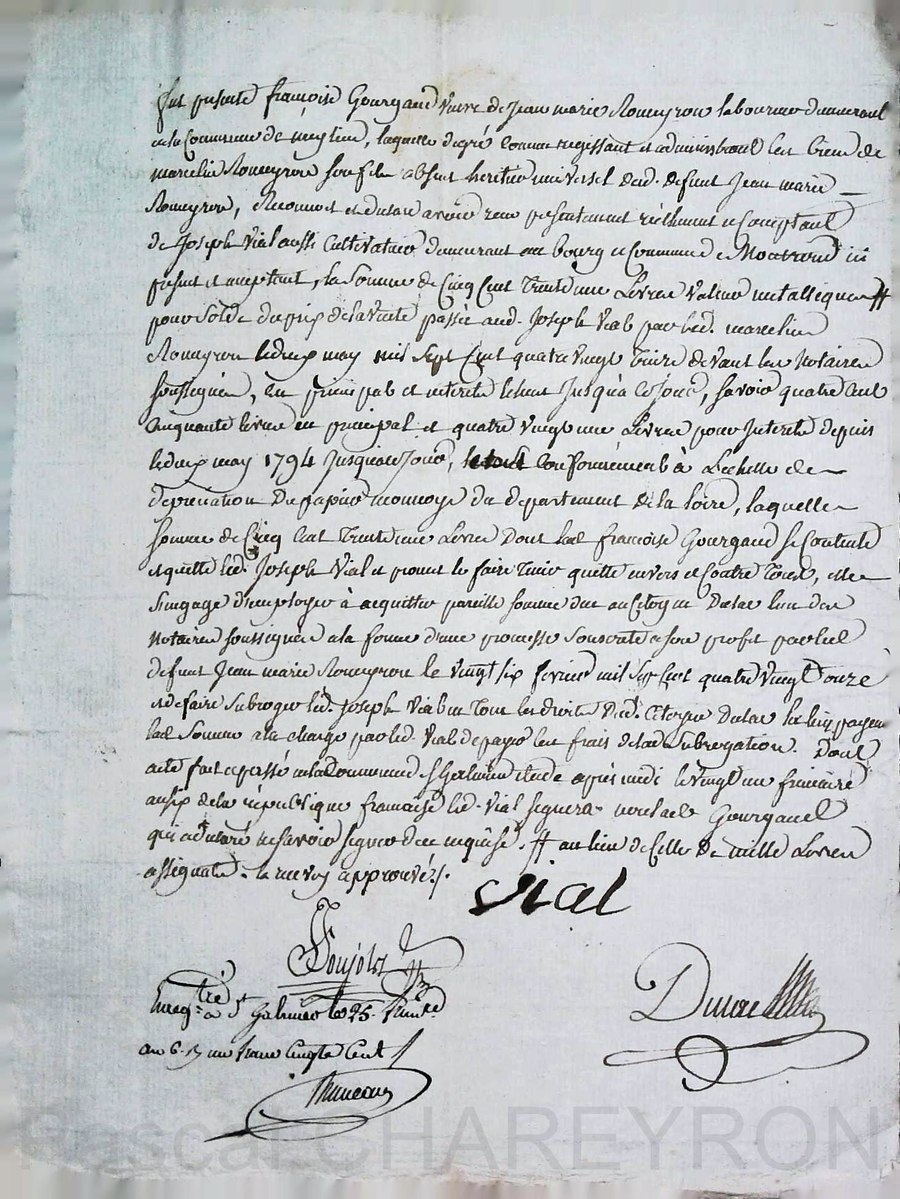 fut presente françoise Gourgaud veuve de Jean marie Romeyron laboureur demeurant
en la Commune de meylieu, laquelle de gré comme regissant et administrant les biens de
marcelin Romeyron son fils absent heritier universel dud. defunt Jean marie
Romeyron, Reconnoit et declare avoir reçu presentement réellement et comptant
de Joseph Vial aussi Cultivateur demeurant au bourg et Commune de Montrond ici
present et acceptant, la Somme de Cinq Cent Trente une Livres valeur metallique #
pour Solde du prix de la vente passée aud. Joseph Vial par led. marcelin
Romeyron le deux may mil Sept Cent quatre vingt treize devant les Notaires
soussignés, en principal et interets echus Jusqu'à ce jour, savoir quatre Cent
Cinquante livres en principal et quatre vingt une Livres pour Interets depuis
le deux may 1794 Jusqu'à ce Jour, Conformément à L'echelle de
depreciation du papier monnoye du departement de la Loire, laquelle
somme de Cinq Cent Trente une Livres Dont lad. francoise Gourgaud se Contente
et quitte led. Joseph Vial et promet le faire tenir quitte envers et Contre Tous, elle
S'engage d'employer à acquitter pareille somme due au Citoyen Dulac l'un des
Notaires soussignés a la forme d'une promesse Souscrite a son profit par led.
defunt Jean marie Romeyron le vingt six fevrier mil Sept Cent quatre vingt onze
et de faire subroger led. Joseph Vial en Tous les droits dud. Citoyen Dulac en lui payant
lad. Somme a la charge par led. Vial de payer les frais de lad. Subrogation. Dont
acte fait et passé en la Commune de St Galmier etude après midi le vingt un frimaire
an six de la république française led. Vial signera non lad. Gourgaud
qui a declaré ne savoir signer de ce enquise. # au lieu de Celle de mille Livres
assignats. le renvoy approuvé ./.
Vial
Poujol
Dulac
Enregtré à St Galmier le 25 frimre
an 6. R. un franc Cinqte Cent